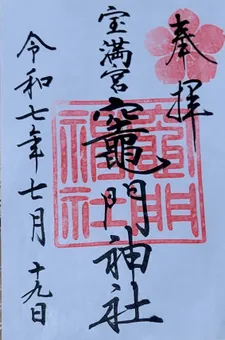 奉拝
宝満宮
竈門神社
令和七年七月十九日
竈門神社